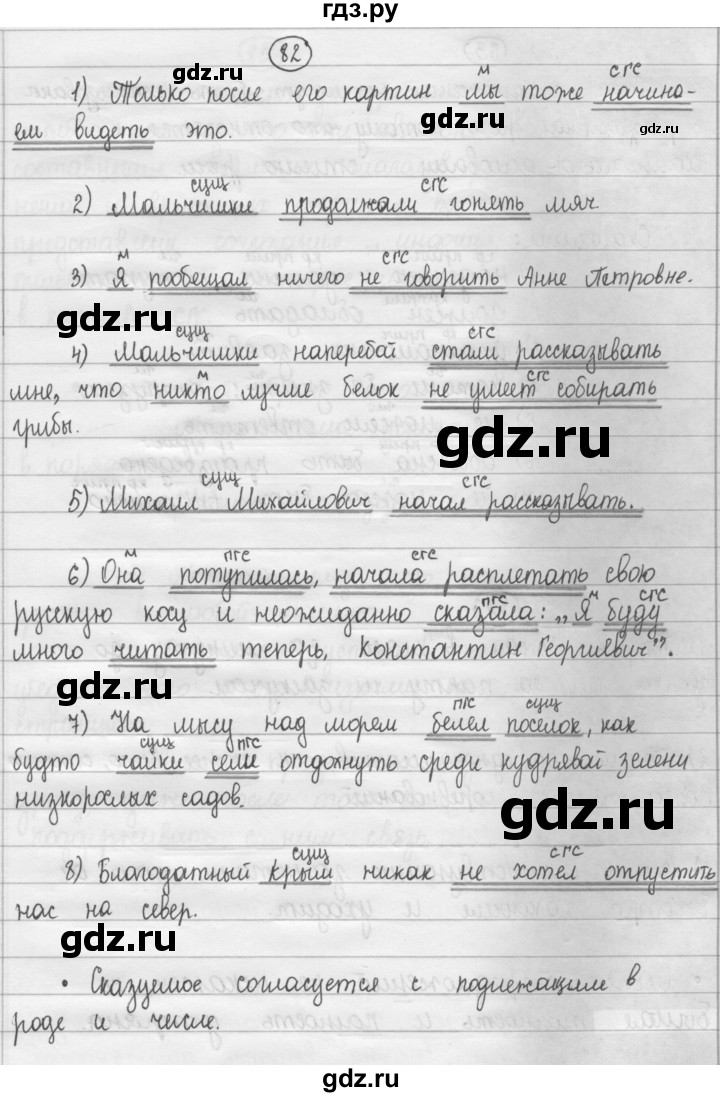 гдз.ру
82
м сгс
1) Только после его картин мы тоже начина-
ем видеть это.
gdz.ru
gdz.ru
сущ сгс
2) Мальчишки продолжали гонять мяч
м сгс
3) Я пообещал ничего не говорить Анне Петровне.
gdz.ru
сущ сгс
4) Мальчишки наперебой стали рассказывать
м сгс
мне, что никто лучше белок не умеет собирать
грибы.
gdz.ru
сущ сгс
5) Михаил Михайлович начал рассказывать.
м пгс сгс
6) Она потупилась, начала расплетать свою
пгс м сгс
русскую косу и неожиданно сказала: „Я буду
много читать теперь, Константин Георгиевич”.
gdz.ru
пгс сущ
7) На мысу над морем белел поселок, как
сущ пгс
будто чайки сели отдохнуть среди кудрявой зелени
низкорослых садов.
gdz.ru
сущ сгс
8) Благодатный крым никак не хотел отпустить
нас на север.
gdz.ru
• Сказуемое согласуется с подлежащим в
роде и числе.
gdz.ru